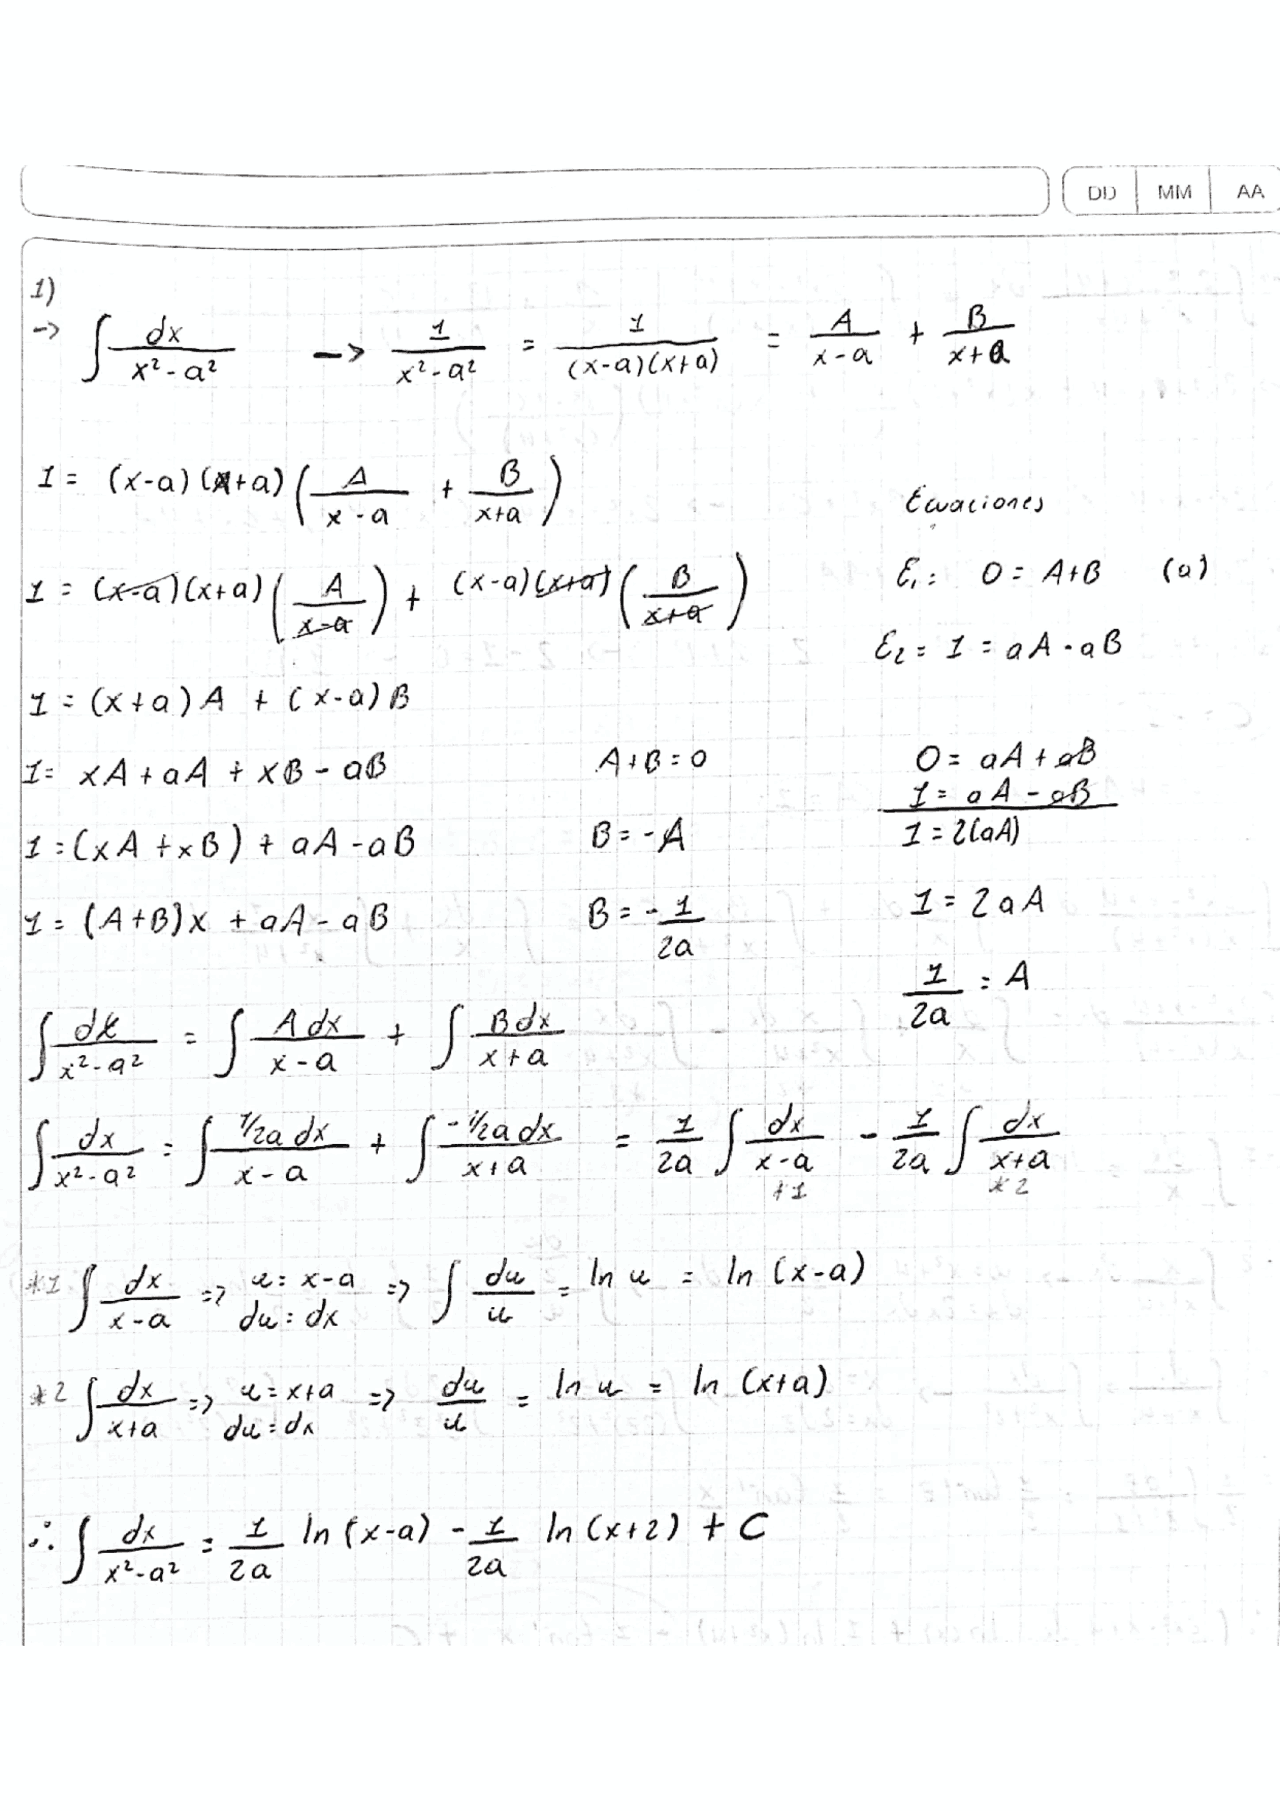 DD MM AA
1)
-> ∫ dx/(x² - a²) -> 1/(x² - a²) = 1/((x-a)(x+a)) = A/(x-a) + B/(x+a)
1 = (x-a)(x+a)(A/(x-a) + B/(x+a))
Ecuaciones
1 = (x-a)(x+a)(A/(x-a)) + (x-a)(x+a)(B/(x+a))
E₁: 0 = A+B (a)
E₂ = 1 = aA - aB
1 = (x+a)A + (x-a)B
1 = xA + aA + xB - aB
A+B = 0
0 = aA + aB
1 = aA - aB
1 = (xA + xB) + aA - aB
B = -A
1 = 2(aA)
1 = (A+B)x + aA - aB
B = -1/2a
1 = 2aA
1/2a = A
∫ dx/(x² - a²) = ∫ A dx/(x-a) + ∫ B dx/(x+a)
∫ dx/(x² - a²) = ∫ 1/2a dx/(x-a) + ∫ -1/2a dx/(x+a) = 1/2a ∫ dx/(x-a) - 1/2a ∫ dx/(x+a)
*1 *2
*1 ∫ dx/(x-a) => u = x-a => ∫ du/u = ln u = ln (x-a)
du = dx
*2 ∫ dx/(x+a) => u = x+a => du/u = ln u = ln (x+a)
du = dx
∴ ∫ dx/(x² - a²) = 1/2a ln (x-a) - 1/2a ln (x+2) + C